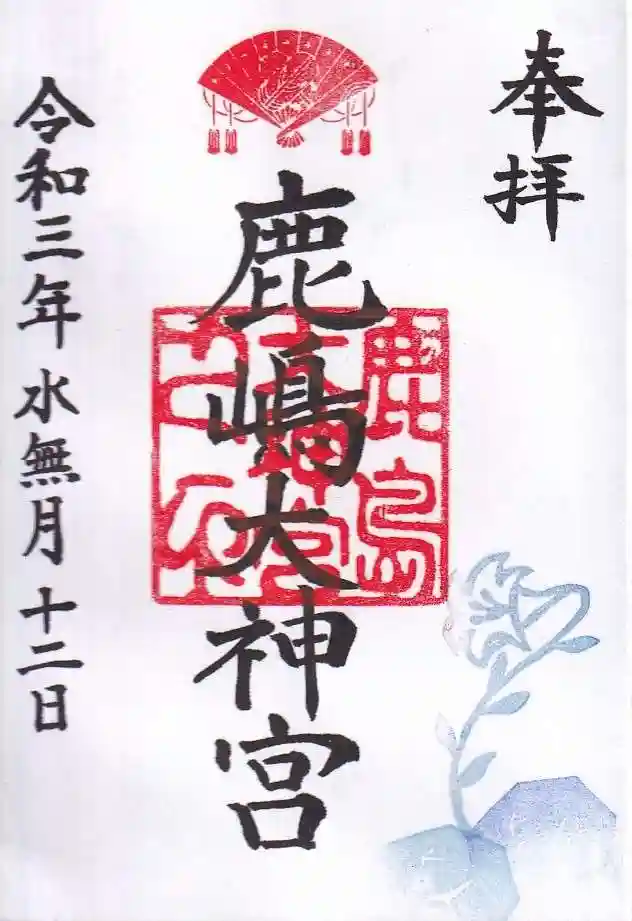 奉拝
鹿嶋大神宮
鹿島
令和三年水無月十二日